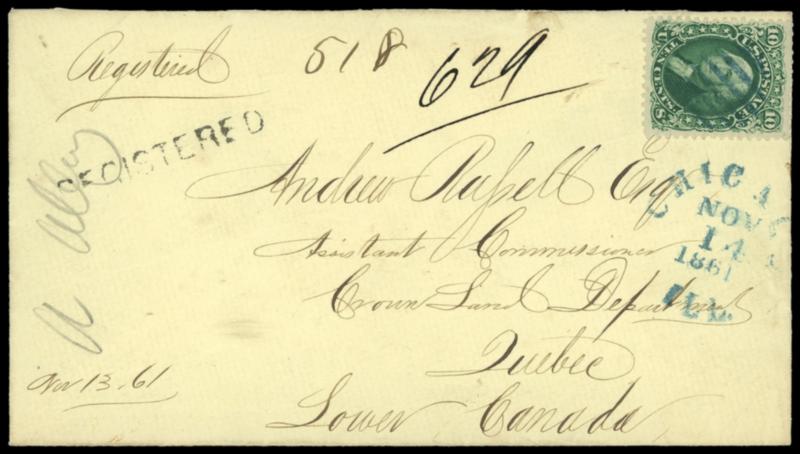 Registered
518
629
REGISTERED
Andrew Russell Esq
Assistant Commissioner
Crown Land Department
Quebec
Lower Canada
Nov 13. 61
CHICAGO
NOV
14
1861
ILL.
U.S. POSTAGE
10 TEN CENTS 10